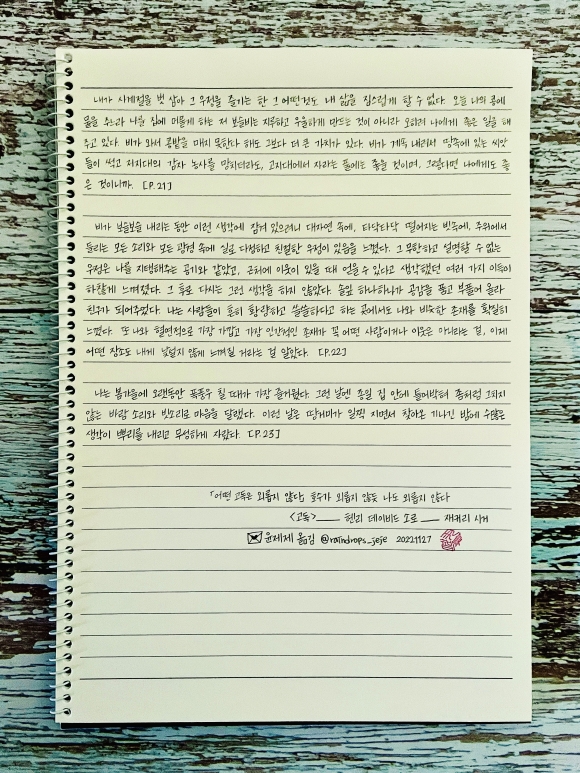 내가 사계절을 벗 삼아 그 우정을 즐기는 한 그 어떤 것도 내 삶을 짐스럽게 할 수 없다. 오늘 나의 콩에
물을 주느라 나를 집에 머물게 하는 저 보슬비는 지루하고 우울하게 만드는 것이 아니라 오히려 나에게 좋은 일을 해
주고 있다. 비가 와서 콩밭을 매지 못한다 해도 그보다 더 큰 가치가 있다. 비가 계속 내려서 땅속에 있는 씨앗
들이 썩고 저지대의 감자 농사를 망치더라도, 고지대에서 자라는 풀에는 좋을 것이며, 그렇다면 나에게도 좋
은 것이니까. [P.21]
비가 보슬보슬 내리는 동안 이런 생각에 잠겨 있으려니 대자연 속에, 타닥타닥 떨어지는 빗속에, 주위에서
들리는 모든 소리와 모든 광경 속에 실로 다정하고 친절한 우정이 있음을 느꼈다. 그 무한하고 설명할 수 없는
우정은 나를 지탱해주는 공기와 같았고, 근처에 이웃이 있을 때 얻을 수 있다고 생각했던 여러 가지 이득이
하찮게 느껴졌다. 그 후로 다시는 그런 생각을 하지 않았다. 솔잎 하나하나가 공감을 품고 부풀어 올라
친구가 되어주었다. 나는 사람들이 흔히 황량하고 쓸쓸하다고 하는 곳에서도 나와 비슷한 존재를 확실히
느꼈다. 또 나와 혈연적으로 가장 가깝고 가장 인간적인 존재가 꼭 어떤 사람이거나 이웃은 아니라는 걸, 이제
어떤 장소도 내게 낯설지 않게 느껴질 거라는 걸 알았다. [P.22]
나는 봄가을에 오랫동안 폭풍우 칠 때가 가장 즐거웠다. 그런 날엔 종일 집 안에 틀어박혀 좀처럼 그치지
않는 바람 소리와 빗소리로 마음을 달랬다. 이런 날은 땅거미가 일찍 지면서 찾아온 기나긴 밤에 수많은
생각이 뿌리를 내리고 무성하게 자랐다. [P.23]
「어떤 고독은 외롭지 않다」 호수가 외롭지 않듯 나도 외롭지 않다
<고독> ── 헨리 데이비드 소로 ── 재커리 시거
윤제제 옮김 @raindrops_jeje 20221127